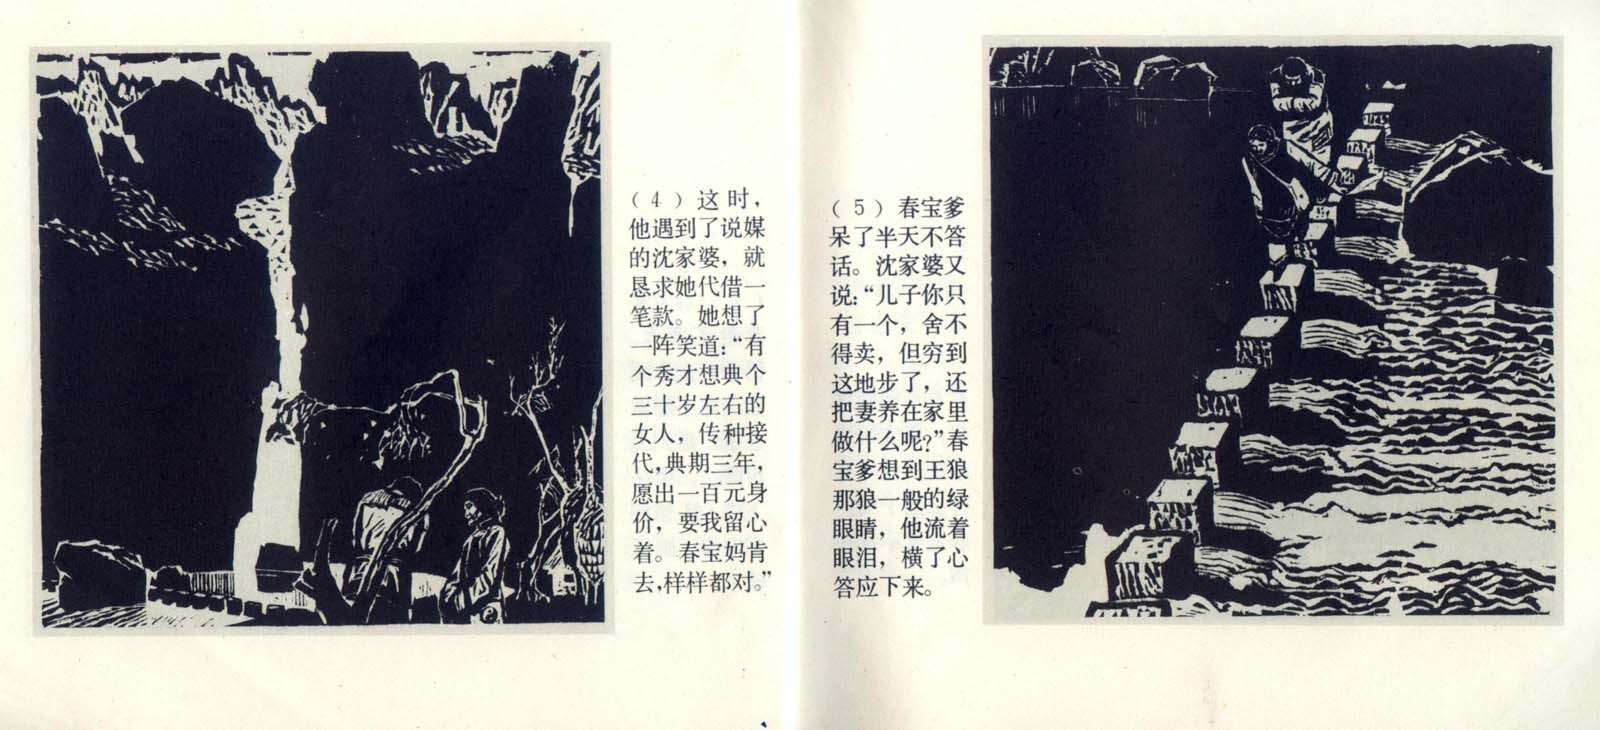 （4）这时，
他遇到了说媒
的沈家婆，就
恳求她代借一
笔款。她想了
一阵笑道：“有
个秀才想典个
三十岁左右的
女人，传种接
代，典期三年，
愿出一百元身
价，要我留心
着。春宝妈肯
去，样样都对。”
（5）春宝爹
呆了半天不答
话。沈家婆又
说：“儿子你只
有一个，舍不
得卖，但穷到
这地步了，还
把妻养在家里
做什么呢？”春
宝爹想到王狼
那狼一般的绿
眼睛，他流着
眼泪，横了心
答应下来。